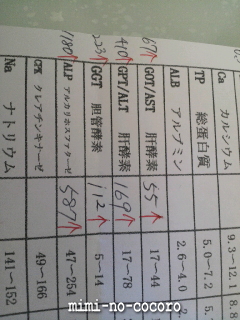 Ca カルシウム 9.3~12.1 8.8
TP 総蛋白質 5.0~7.2 5.
ALB アルブミン 2.6~4.0
67↑ GOT/AST 肝酵素 55↑ 17~44
410↑ GPT/ALT 肝酵素 169↑ 17~78
233↑ GGT 胆管酵素 112↑ 5~14
1180↑ ALP アルカリホスファターゼ 587↑ 47~254
CPK クレアチンキナーゼ 49~166
Na ナトリウム 141~152
mimi-no-cocoro